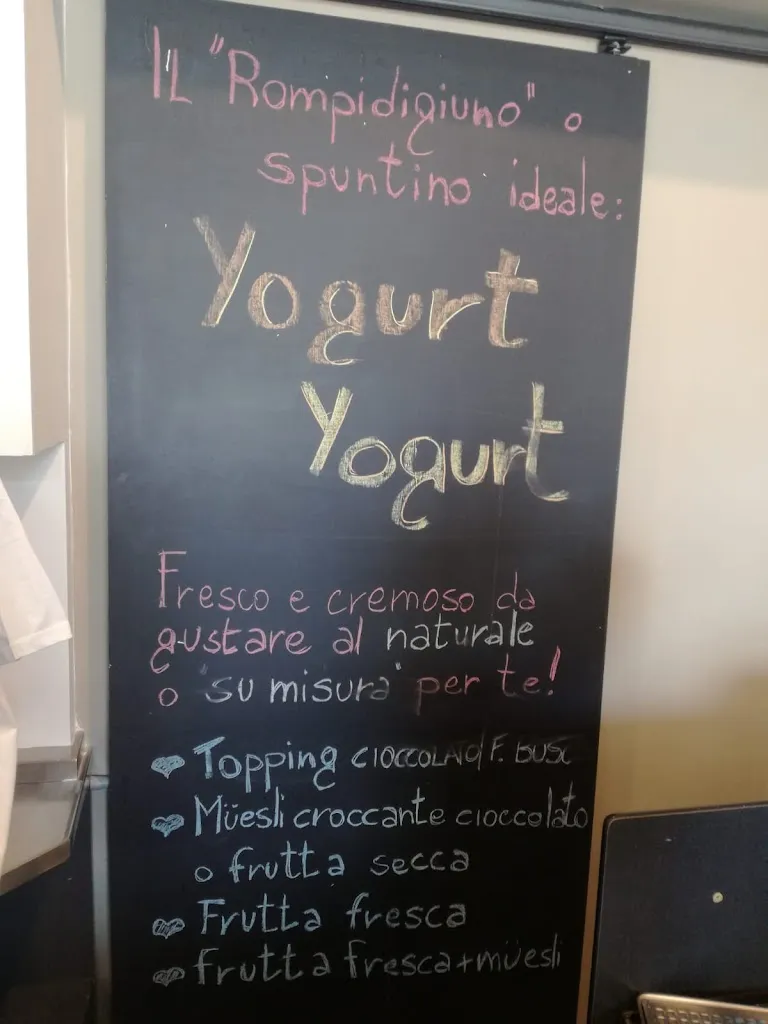 IL "Rompidigiuno" o
spuntino ideale:
Yogurt
Yogurt
Fresco e cremoso da
gustare al naturale
o "su misura" per te!
Topping CIOCCOLATO/F. BOSC
Müesli croccante cioccolato
o frutta secca
Frutta fresca
frutta fresca+müesli